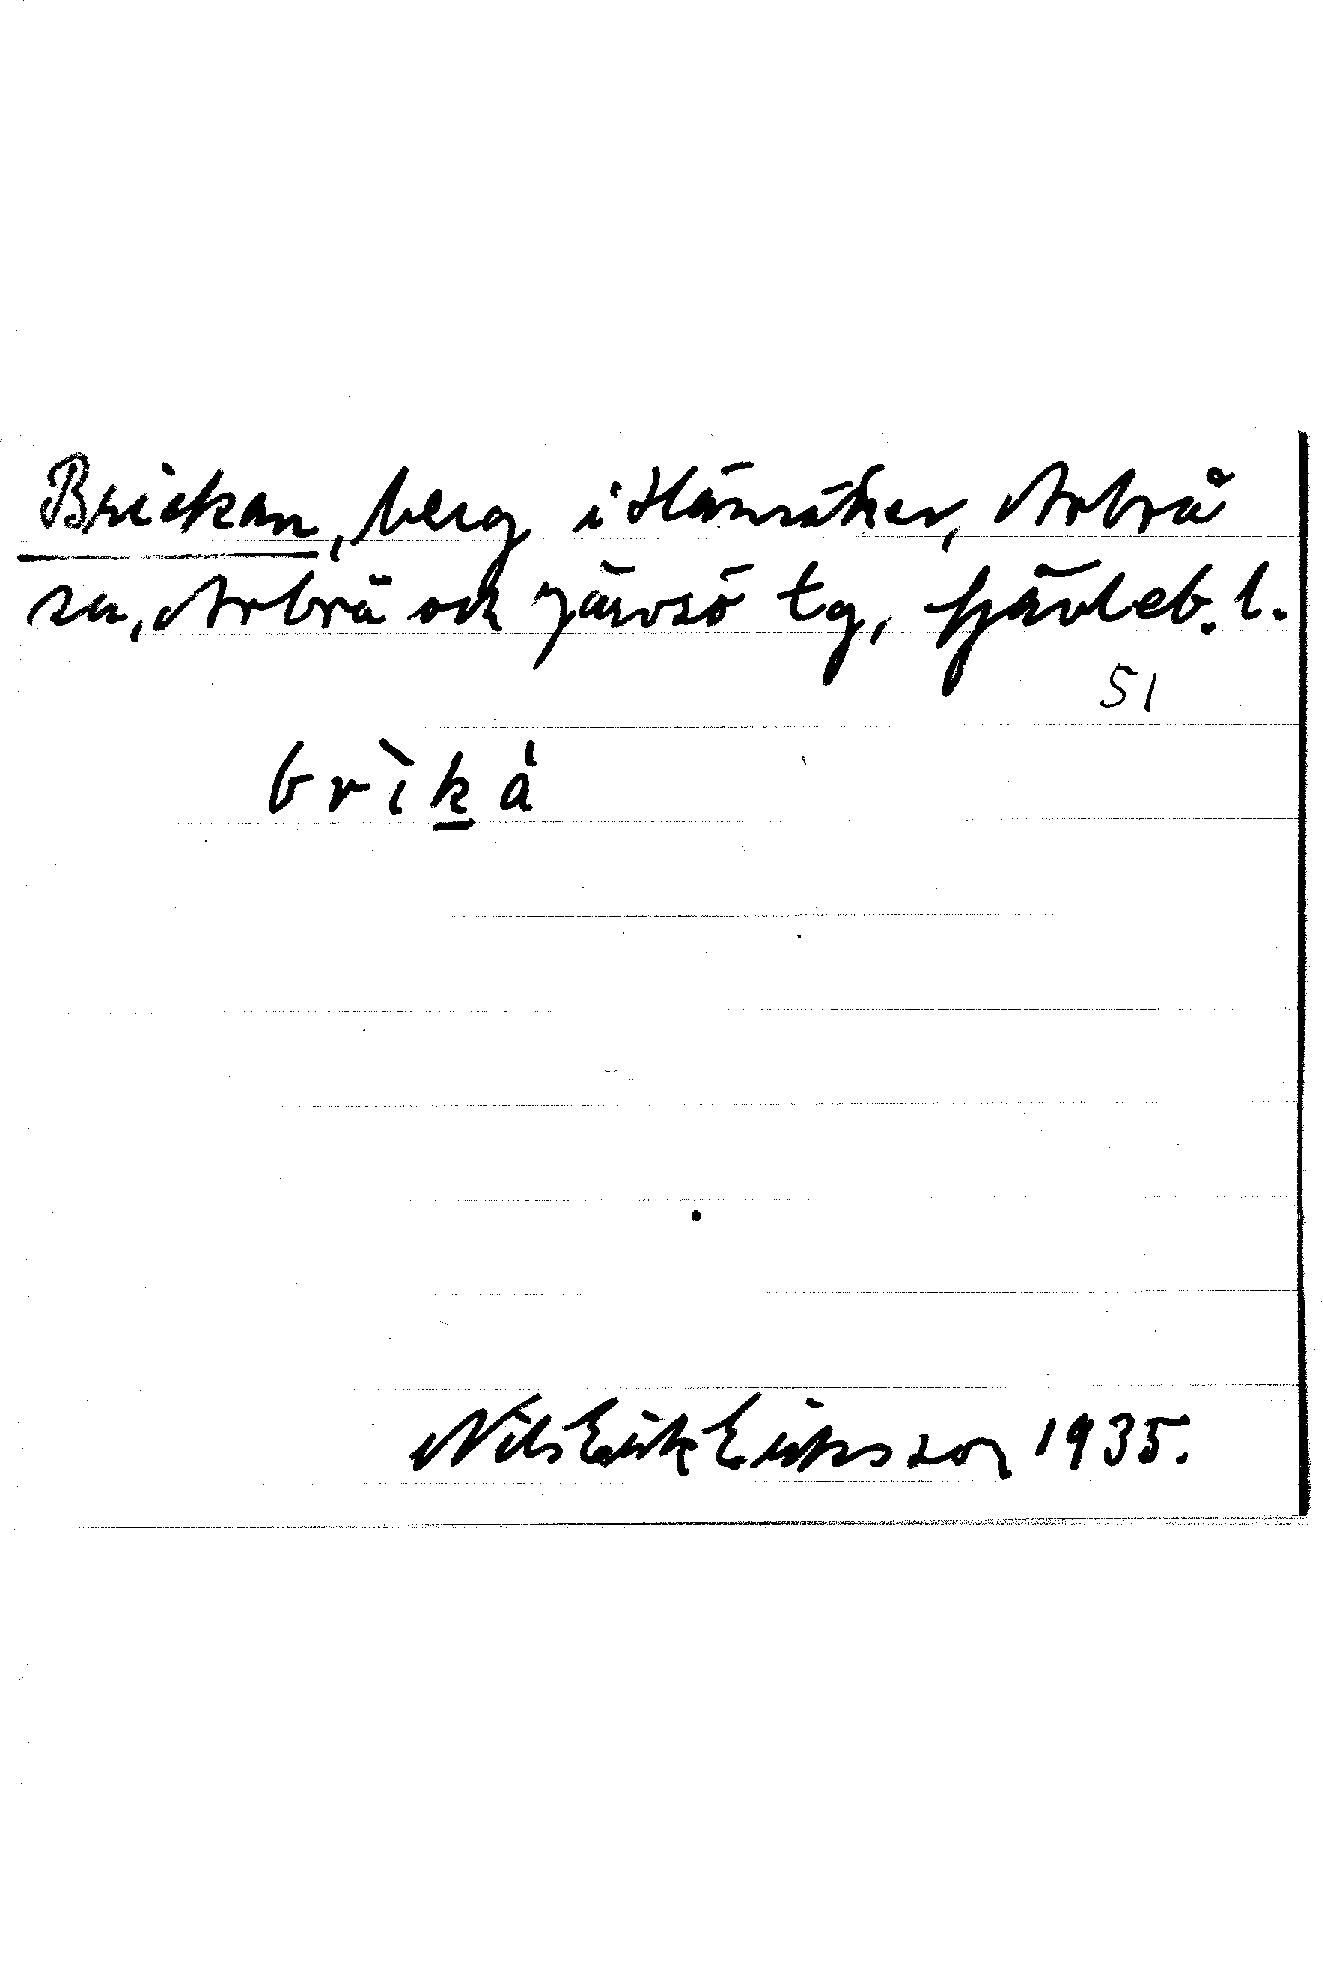 Brickan, berg i Hänsäker, Arbrå
sn, Arbrå och Järvsö tg, Gävleb. l.
51
brìkà
Nils Erik Eriksson 1935.